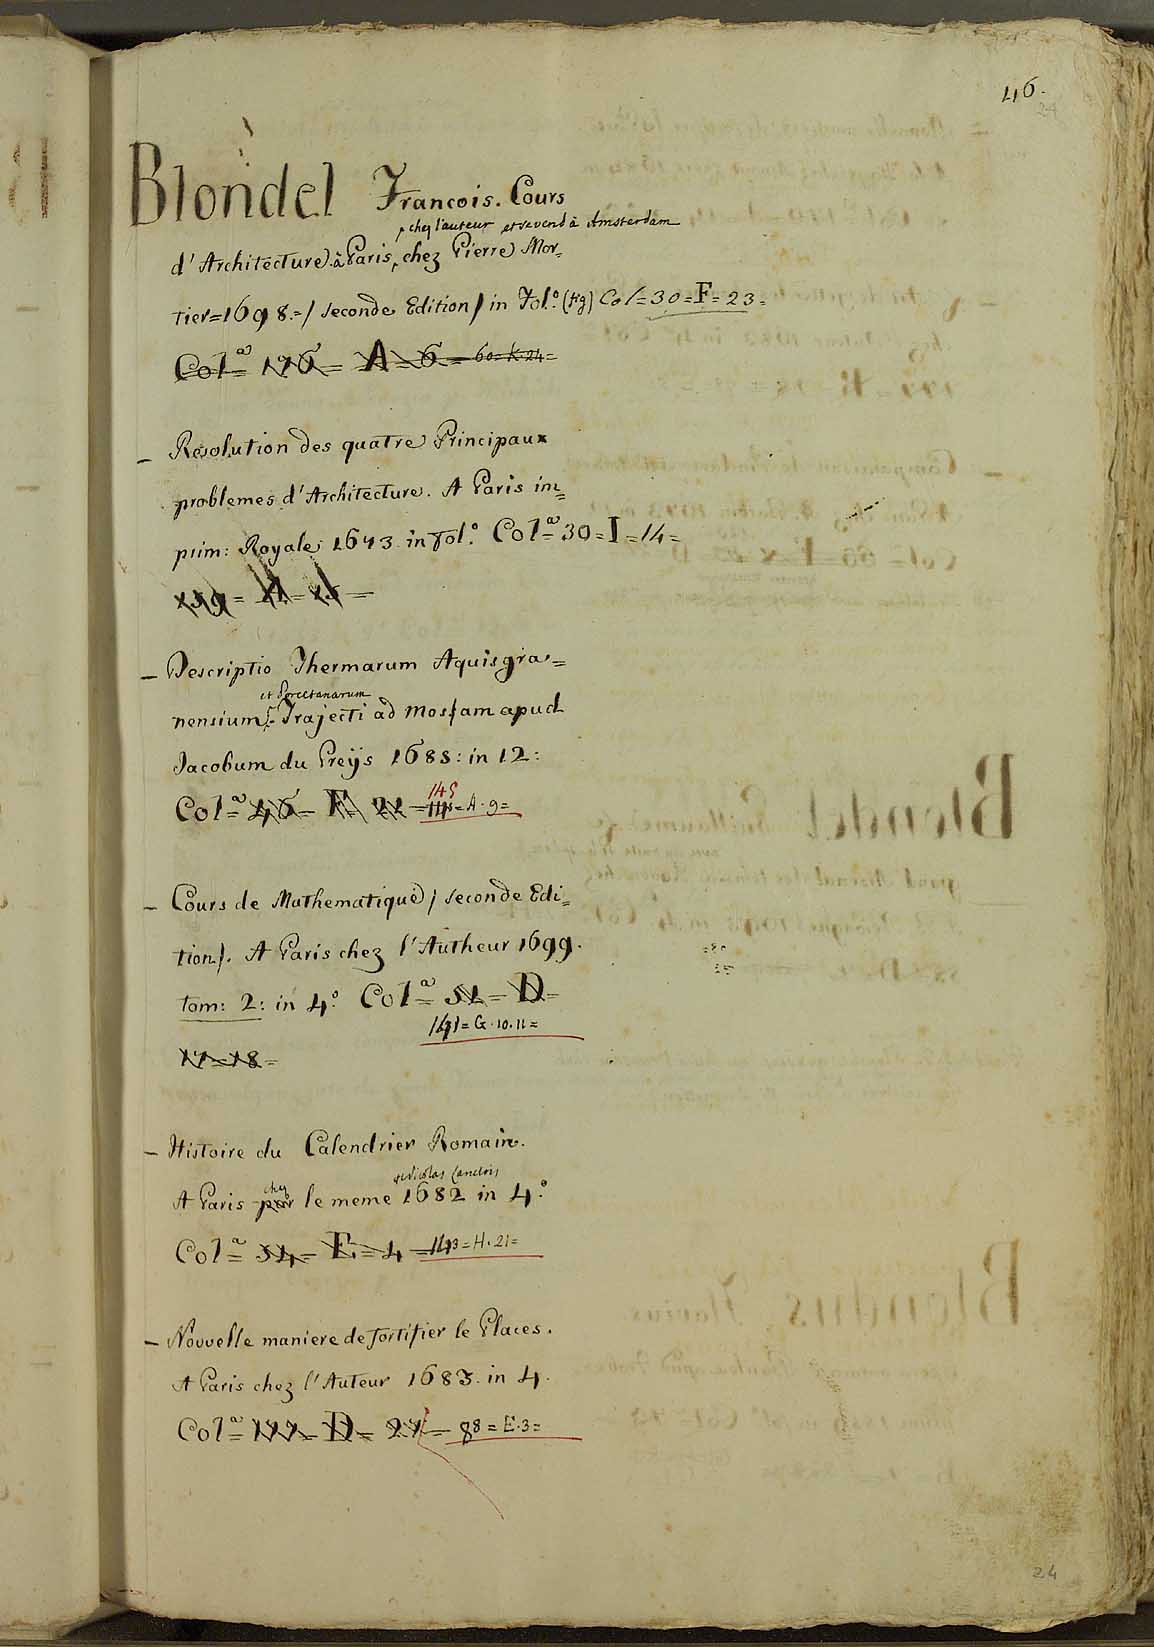 46.
24
Blondel Francois. Cours
chez l'auteur et se vend à Amsterdam
d'Architecture. à Paris, chez Pierre Mor=
tier=1698.=/ seconde Edition / in Fol.o (Fig) Col=30=F=23=
Col=a 176= A=6=60=K.24=
- Resolution des quatre Principaux
problemes d'Architecture. A Paris im=
prim: Royale 1673 in fol.o Col=a 30=I=14=
- Descriptio Thermarum Aquisgra=
et Porcetanarum
nensium. Trajecti ad Mosam apud
Jacobum du Preijs 1688: in 12:
145
Col=a 46= F= 22= =A.9=
- Cours de Mathematique / seconde Edi=
tion/. A Paris chez l'Autheur 1699.
tom: 2: in 4.o Col=a 51= D=
141=G.10.11=
17=18=
- Histoire du Calendrier Romain.
chez et Nicolas Langlois
A Paris par le meme 1682 in 4.o
Col=a 54= E=4 =143=H.21=
- Nouvelle maniere de fortifier le Places.
A Paris chez l'Auteur 1683. in 4.
Col=a 177= D= 27= 98=E.3=
24